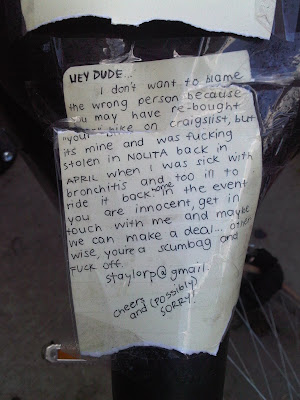 HEY DUDE...
I don't want to blame
the wrong person because
you may have re-bought
"your" bike on craigslist, but
its mine and was fucking
stolen in NOLITA back in
APRIL when I was sick with
bronchitis and too ill to
ride it back home. in the event
you are innocent, get in
touch with me and maybe
we can make a deal... other
wise, youre a scumbag and
FUCK OFF.
staylorp@gmail.
cheers
and (possibly)
SORRY!